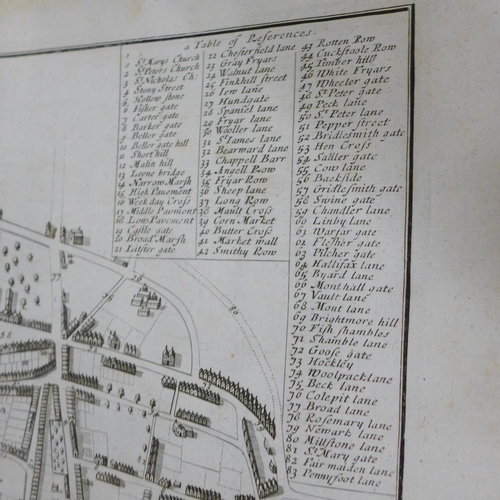 a Table of References
1 St Marys Church
2 St Peters Church
3 St Nicholas Ch:
4 Stony Street
5 Hollow stone
6 Fisher gate
7 Carter gate
8 Barker gate
9 Beller gate
10 Beller gate hill
11 Short hill
12 Malin hill
13 Leene bridge
14 Narrow Marsh
15 High Pavement
16 Week day Cross
17 Middle Pavment
18 Low Pavement
19 Castle gate
20 Broad Marsh
21 Lister gate
22 Chesterfield lane
23 Gray Fryars
24 Walnut lane
25 Finkhill street
26 Tew lane
27 Hundgate
28 Spaniel lane
29 Fryar lane
30 Wooller lane
31 St James lane
32 Bearward lane
33 Chappell Barr
34 Angell Row
35 Fryar Row
36 Sheep lane
37 Long Row
38 Mault Cross
39 Corn Market
40 Butter Cross
41 Market wall
42 Smithy Row
43 Rotten Row
44 Cuckstoole Row
45 Timber hill
46 White Fryars
47 Wheeler gate
48 St Peter gate
49 Peck lane
50 St Peter lane
51 Pepper street
52 Bridlesmith gate
53 Hen Cross
54 Saller gate
55 Cow lane
56 Backside
57 Gridlesmith gate
58 Swine gate
59 Chandler lane
60 Linby lane
61 Warfar gate
62 Flesher gate
63 Pilcher gate
64 Hallifax lane
65 Byard lane
66 Mont hall gate
67 Vault lane
68 Mont lane
69 Brightmore hill
70 Fish shambles
71 Shamble lane
72 Goose gate
73 Hockley
74 Woolpack lane
75 Beck lane
76 Colepit lane
77 Broad lane
78 Rosemary lane
79 Newark lane
80 Millstone lane
81 St Mary gate
82 Fair maiden lane
83 Pennyfoot lane
77
78
79
80